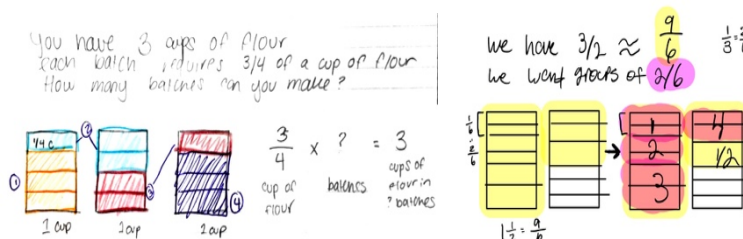 You have 3 cups of flour
Each batch requires 3/4 of a cup of flour
How many batches can you make?
1/4 c.
①
②
③
④
1 cup
1 cup
1 cup
3/4 × ? = 3
cup of flour
batches
cups of flour in ? batches
we have 3/2 ≈ 9/6
we want groups of 2/6
1/3 =
1/6
2/6
1
2
3
4
1/2
1 1/2 = 9/6